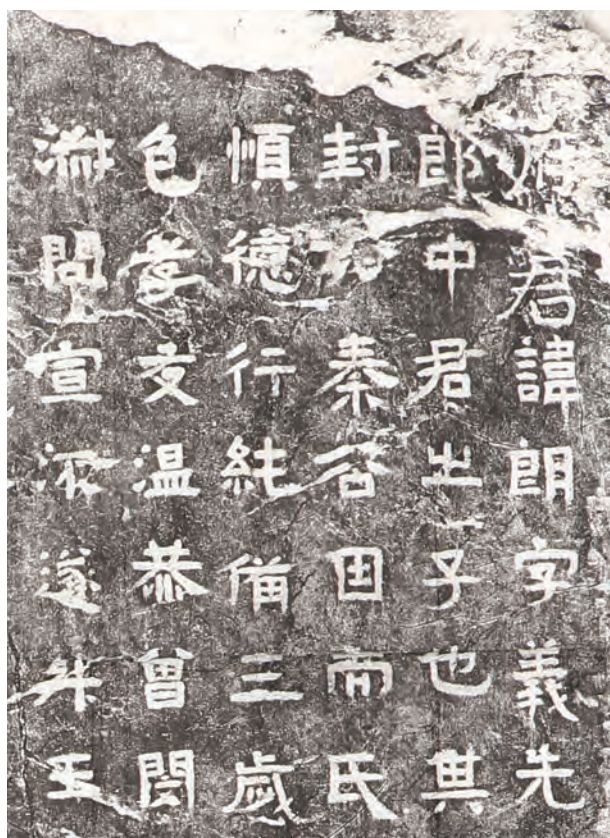 府君諱朗字義先
郎中君之子也其
封於秦谷因而氏
順德行純備三歲
色孝友温恭曾閔
問宣流遂升王